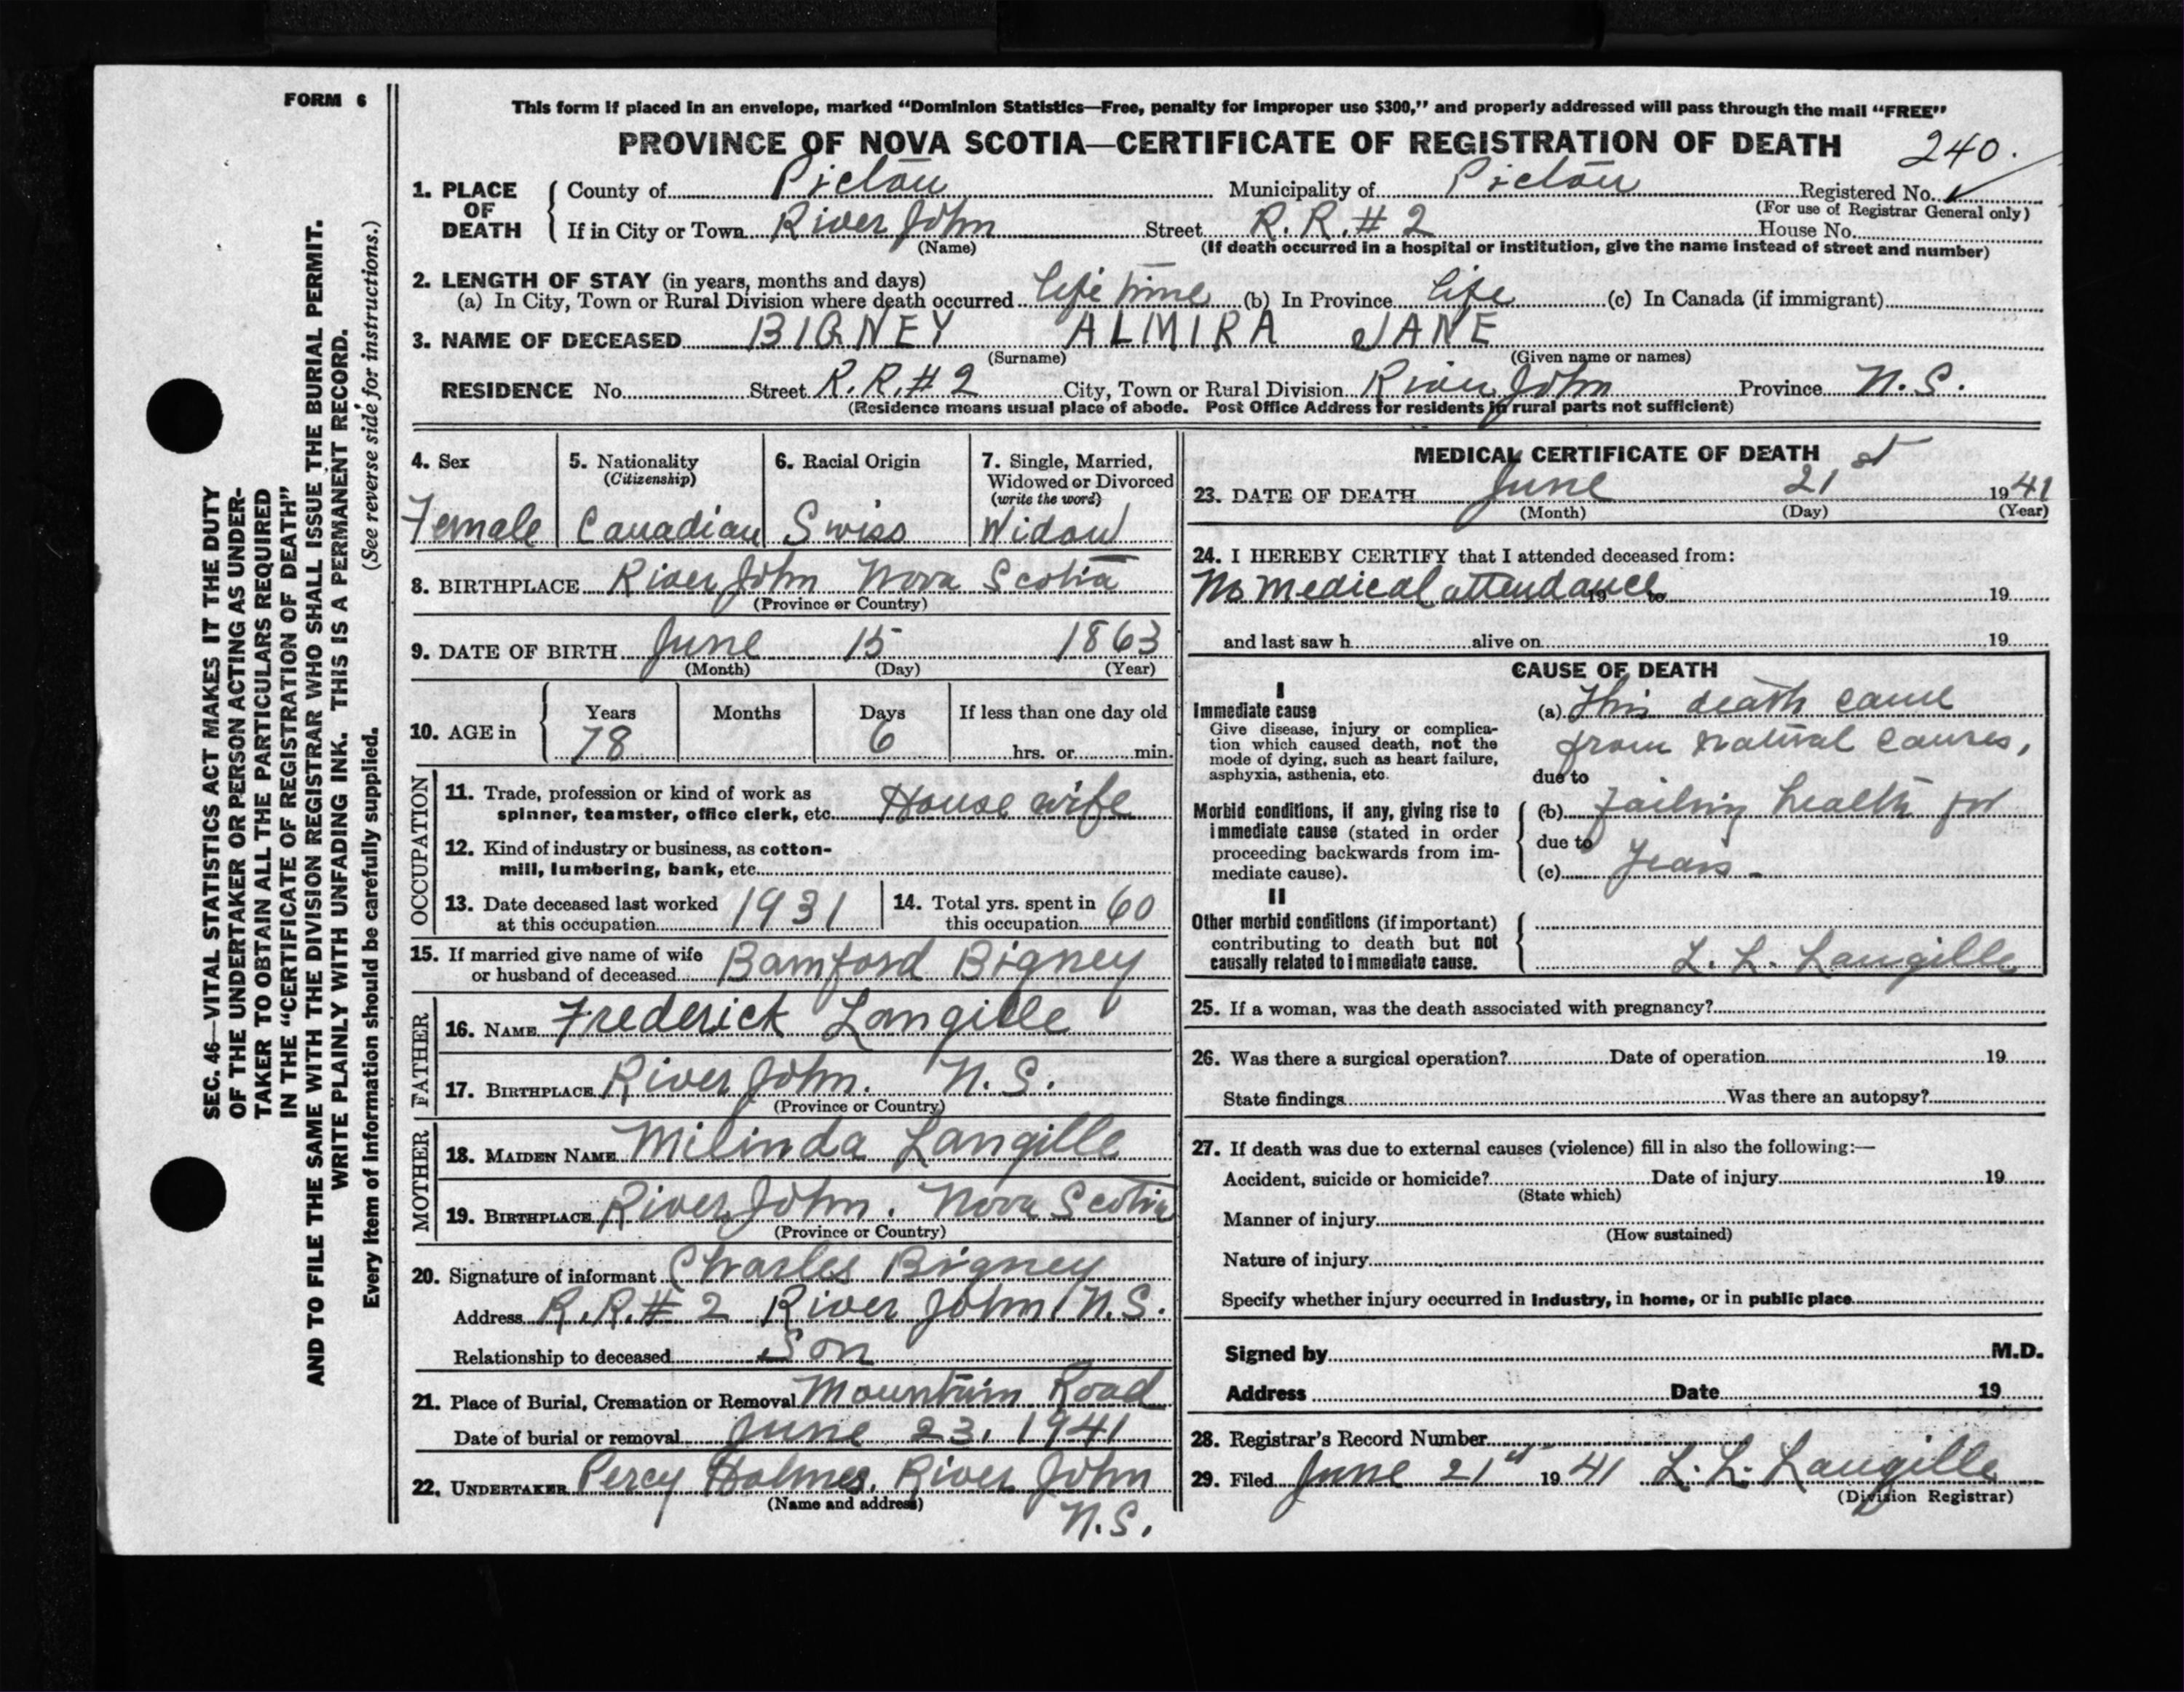 FORM 6
This form if placed in an envelope, marked “Dominion Statistics—Free, penalty for improper use $300,” and properly addressed will pass through the mail “FREE”
PROVINCE OF NOVA SCOTIA—CERTIFICATE OF REGISTRATION OF DEATH
240.
1. PLACE OF DEATH
County of Pictou Municipality of Pictou Registered No. ✓
(For use of Registrar General only)
If in City or Town River John Street R.R.# 2 House No.
(Name) (If death occurred in a hospital or institution, give the name instead of street and number)
2. LENGTH OF STAY (in years, months and days)
(a) In City, Town or Rural Division where death occurred Life time (b) In Province Life (c) In Canada (if immigrant)
3. NAME OF DECEASED BIGNEY ALMIRA JANE
(Surname) (Given name or names)
RESIDENCE No. Street R.R.# 2 City, Town or Rural Division River John Province N.S.
(Residence means usual place of abode. Post Office Address for residents in rural parts not sufficient)
4. Sex
Female
5. Nationality
(Citizenship)
Canadian
6. Racial Origin
Swiss
7. Single, Married,
Widowed or Divorced
(write the word)
Widow
8. BIRTHPLACE River John Nova Scotia
(Province or Country)
9. DATE OF BIRTH June 15 1863
(Month) (Day) (Year)
10. AGE in
Years Months Days If less than one day old
78 6 hrs. or min.
OCCUPATION
11. Trade, profession or kind of work as
spinner, teamster, office clerk, etc. House wife
12. Kind of industry or business, as cotton-
mill, lumbering, bank, etc.
13. Date deceased last worked
at this occupation 1931
14. Total yrs. spent in
this occupation 60
15. If married give name of wife
or husband of deceased Bamford Bigney
FATHER
16. NAME Frederick Langille
17. BIRTHPLACE River John. N.S.
(Province or Country)
MOTHER
18. MAIDEN NAME Milinda Langille
19. BIRTHPLACE River John. Nova Scotia
(Province or Country)
20. Signature of informant Charles Bigney
Address R.R.# 2 River John, N.S.
Relationship to deceased Son
21. Place of Burial, Cremation or Removal Mountain Road
Date of burial or removal June 23, 1941
22. UNDERTAKER Percy Holmes, River John
(Name and address)
N.S.
MEDICAL CERTIFICATE OF DEATH
23. DATE OF DEATH June 21st 1941
(Month) (Day) (Year)
24. I HEREBY CERTIFY that I attended deceased from:
No medical attendance 19 to 19
and last saw h alive on 19
CAUSE OF DEATH
I
Immediate cause
Give disease, injury or complica-
tion which caused death, not the
mode of dying, such as heart failure,
asphyxia, asthenia, etc.
(a) This death came
from natural causes,
due to
Morbid conditions, if any, giving rise to
immediate cause (stated in order
proceeding backwards from im-
mediate cause).
(b) failing health for
due to
(c) years.
II
Other morbid conditions (if important)
contributing to death but not
causally related to immediate cause.
L. L. Langille
25. If a woman, was the death associated with pregnancy?
26. Was there a surgical operation? Date of operation 19
State findings Was there an autopsy?
27. If death was due to external causes (violence) fill in also the following:—
Accident, suicide or homicide? Date of injury 19
(State which)
Manner of injury
(How sustained)
Nature of injury
Specify whether injury occurred in industry, in home, or in public place
Signed by M.D.
Address Date 19
28. Registrar's Record Number
29. Filed June 21st 1941 L. L. Langille
(Division Registrar)
SEC. 46—VITAL STATISTICS ACT MAKES IT THE DUTY
OF THE UNDERTAKER OR PERSON ACTING AS UNDER-
TAKER TO OBTAIN ALL THE PARTICULARS REQUIRED
IN THE “CERTIFICATE OF REGISTRATION OF DEATH”
AND TO FILE THE SAME WITH THE DIVISION REGISTRAR WHO SHALL ISSUE THE BURIAL PERMIT.
WRITE PLAINLY WITH UNFADING INK. THIS IS A PERMANENT RECORD.
Every item of information should be carefully supplied. (See reverse side for instructions.)